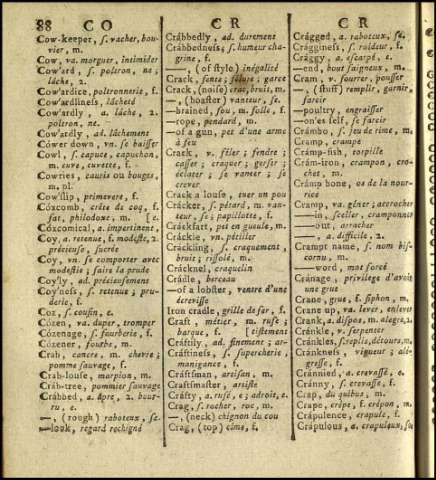 88 C O
C R
C R
Cow-keeper, ſ. vacher, bou-
vier, m.
Cow, va. morguer, intimider
Cow'ard, ſ. poltron, ne;
lâche, 2.
Cow'ardice, poltronnerie, f.
Cow'ardlineſs, lâcheté
Cow'ardly, a. lâche, 2.
poltron, ne.
Cow'ardly, ad. lâchement
Cówer down, vn. ſe baiſſer
Cowl, ſ. capuce, capuchon,
m. cuve, cuvette, f.
Cowries, cauris ou bouges,
m. pl.
Cow'ſlip, primevere, f.
Cóxcomb, crête de coq, f.
fat, philodoxe, m. [e.
Cóxcomical, a. impertinent,
Coy, a. retenue, f. modeſte, 2.
précieuſe, ſucrée
Coy, vn. ſe comporter avec
modeſtie; faire la prude
Coy'ly, ad. précieuſement
Coy'neſs, ſ. retenue; pru-
derie, f.
Coz, ſ. couſin, e.
Cózen, va. duper, tromper
Cózenage, ſ. fourberie, f.
Cózener, fourbe, m.
Crab, cancre, m. chevre;
pomme ſauvage, f.
Crab-louſe, morpion, m.
Cráb-tree, pommier ſauvage
Crábbed, a. âpre, 2. bour-
ru, e.
—, (rough) raboteux, ſe.
—look, regard rechigné
Crábbedly, ad. durement
Crábbedneſs, ſ. humeur cha-
grine, f.
—, (of ſtyle) inégalité
Crack, fente; fêlure; garce
Crack, (noiſe) crac, bruit, m.
—, (boaſter) vanteur, ſe.
—brained, fou, m. folle, f.
—rope, pendard, m.
—of a gun, pet d'une arme
à feu
Crack, v. fêler; fendre;
caſſer; craquer; gerſer;
éclater; ſe vanter; ſe
crever
Crack a louſe, tuer un pou
Crácker, ſ. pétard, m. van-
teur, ſe; papillotte, f.
Cráckfart, pet en gueule, m.
Cráckle, vn. pétiller
Cráckling, ſ. craquement,
bruit; riſſolé, m.
Crácknel, craquelin
Crádle, berceau
—of a lobſter, ventre d'une
écreviſſe
Iron cradle, grille de fer, f.
Craft, métier, m. ruſe;
barque, f. [tiſtement
Cráftily, ad. finement; ar-
Cráftineſs, ſ. ſupercherie,
manigance, f.
Cráftſman, artiſan, m.
Craftſmaſter, artiſte
Cráfty, a. ruſé, e; adroit, e.
Crag, ſ. rocher, roc, m.
—, (neck) chignon du cou
Crag, (top) cîme, f.
Crágged, a. raboteux, ſe.
Crággineſs, ſ. roideur, f.
Crággy, a. eſcarpé, e.
—end, bout ſaigneux, m.
Cram, v. fourrer, pouſſer
—, (ſtuff) remplir, garnir,
farcir
—poultry, engraiſſer
—one's ſelf, ſe farcir
Crámbo, ſ. jeu de rime, m.
Cramp, crampe
Crámp-fiſh, torpille
Crám-iron, crampon, cro-
chet, m.
Crámp bone, os de la nour-
rice
Cramp, va. gêner; accrocher
—in, ſceller, cramponner
—out, arracher
—, a. difficile, 2.
Crampt name, ſ. nom biſ-
cornu, m.
—word, mot forcé
Cránage, privilege d'avoir
une grue
Crane, grue, f. ſiphon, m.
Crane up, va. lever, enlever
Crank, a. diſpos, m. alegre, 2.
Cránkle v. ſerpenter
Cránkles, ſ. replis, détours, m.
Cránkneſs, vigueur; alé-
greſſe, f.
Cránnied, a. crevaſſé, e.
Cránny, ſ. crevaſſe, f.
Crap, du quibus, m.
Crape, crêpe, f. crépon, m.
Crápulence, crapule, f.
Crápulous, a. crapuleux, ſe